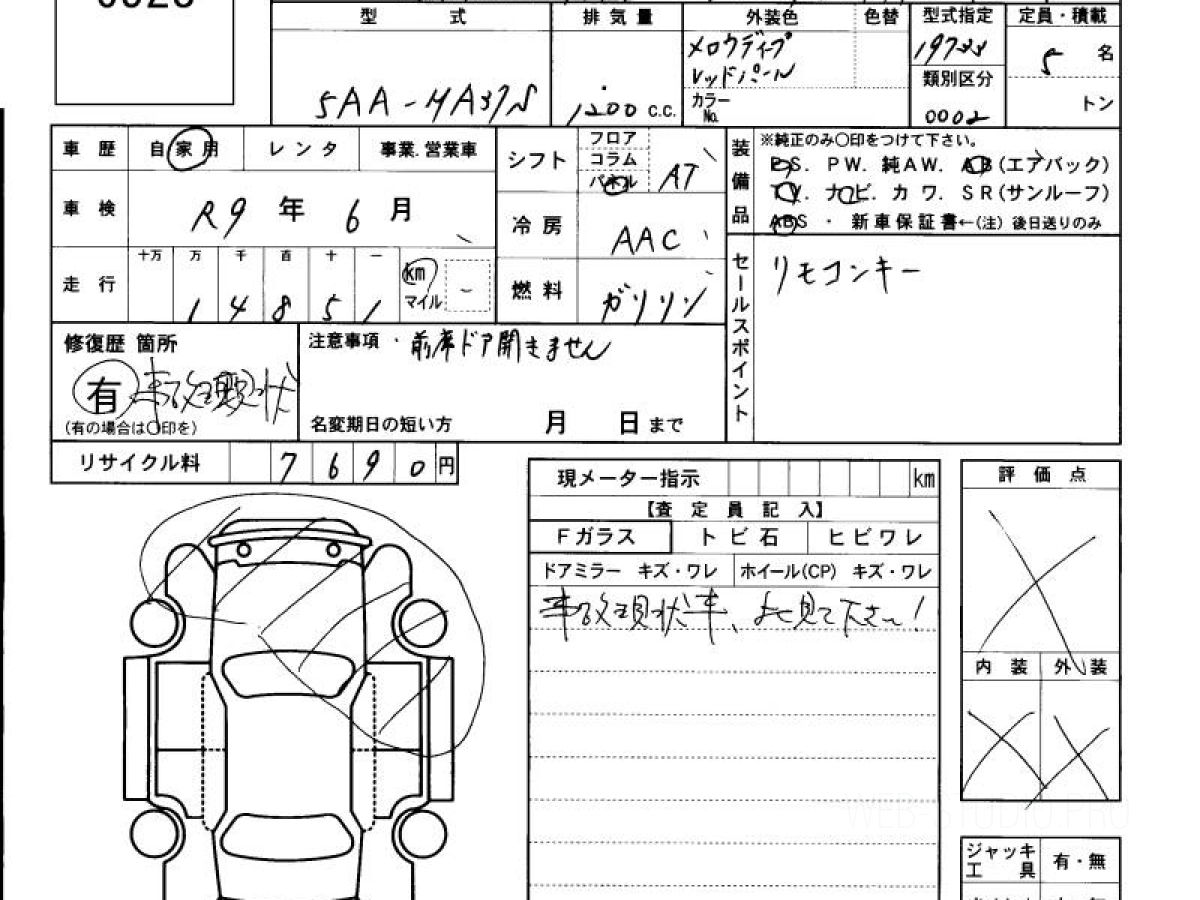 型 式 排気量 外装色 色替 型式指定 定員・積載
メロウディープ
レッドパール
5AA-MA37S 1200 c.c.
カラーNo.
19744
類別区分
0002
5 名
トン
車歴 自家用 レンタ 事業.営業車
シフト フロア コラム パネル AT
装備品 ※純正のみ〇印をつけて下さい。
PS. PW. 純AW. AB(エアバック)
TV. ナビ. カワ. SR(サンルーフ)
ABS ・ 新車保証書←(注) 後日送りのみ
車検 R9年 6月
冷房 AAC
走行 十万 万 千 百 十 一
14851 km マイル
燃料 ガソリン
セールスポイント リモコンキー
修復歴 箇所
有 事故現状
(有の場合は〇印を)
注意事項・前席ドア開きません
名変期日の短い方 月 日まで
リサイクル料 7690円
現メーター指示 km
【査定員記入】
Fガラス トビ石 ヒビワレ
ドアミラー キズ・ワレ ホイール(CP) キズ・ワレ
事故現状車、よく見て下さい!
評価点
内装 外装
ジャッキ
工具
有・無
WEB-STUDIO.PRO